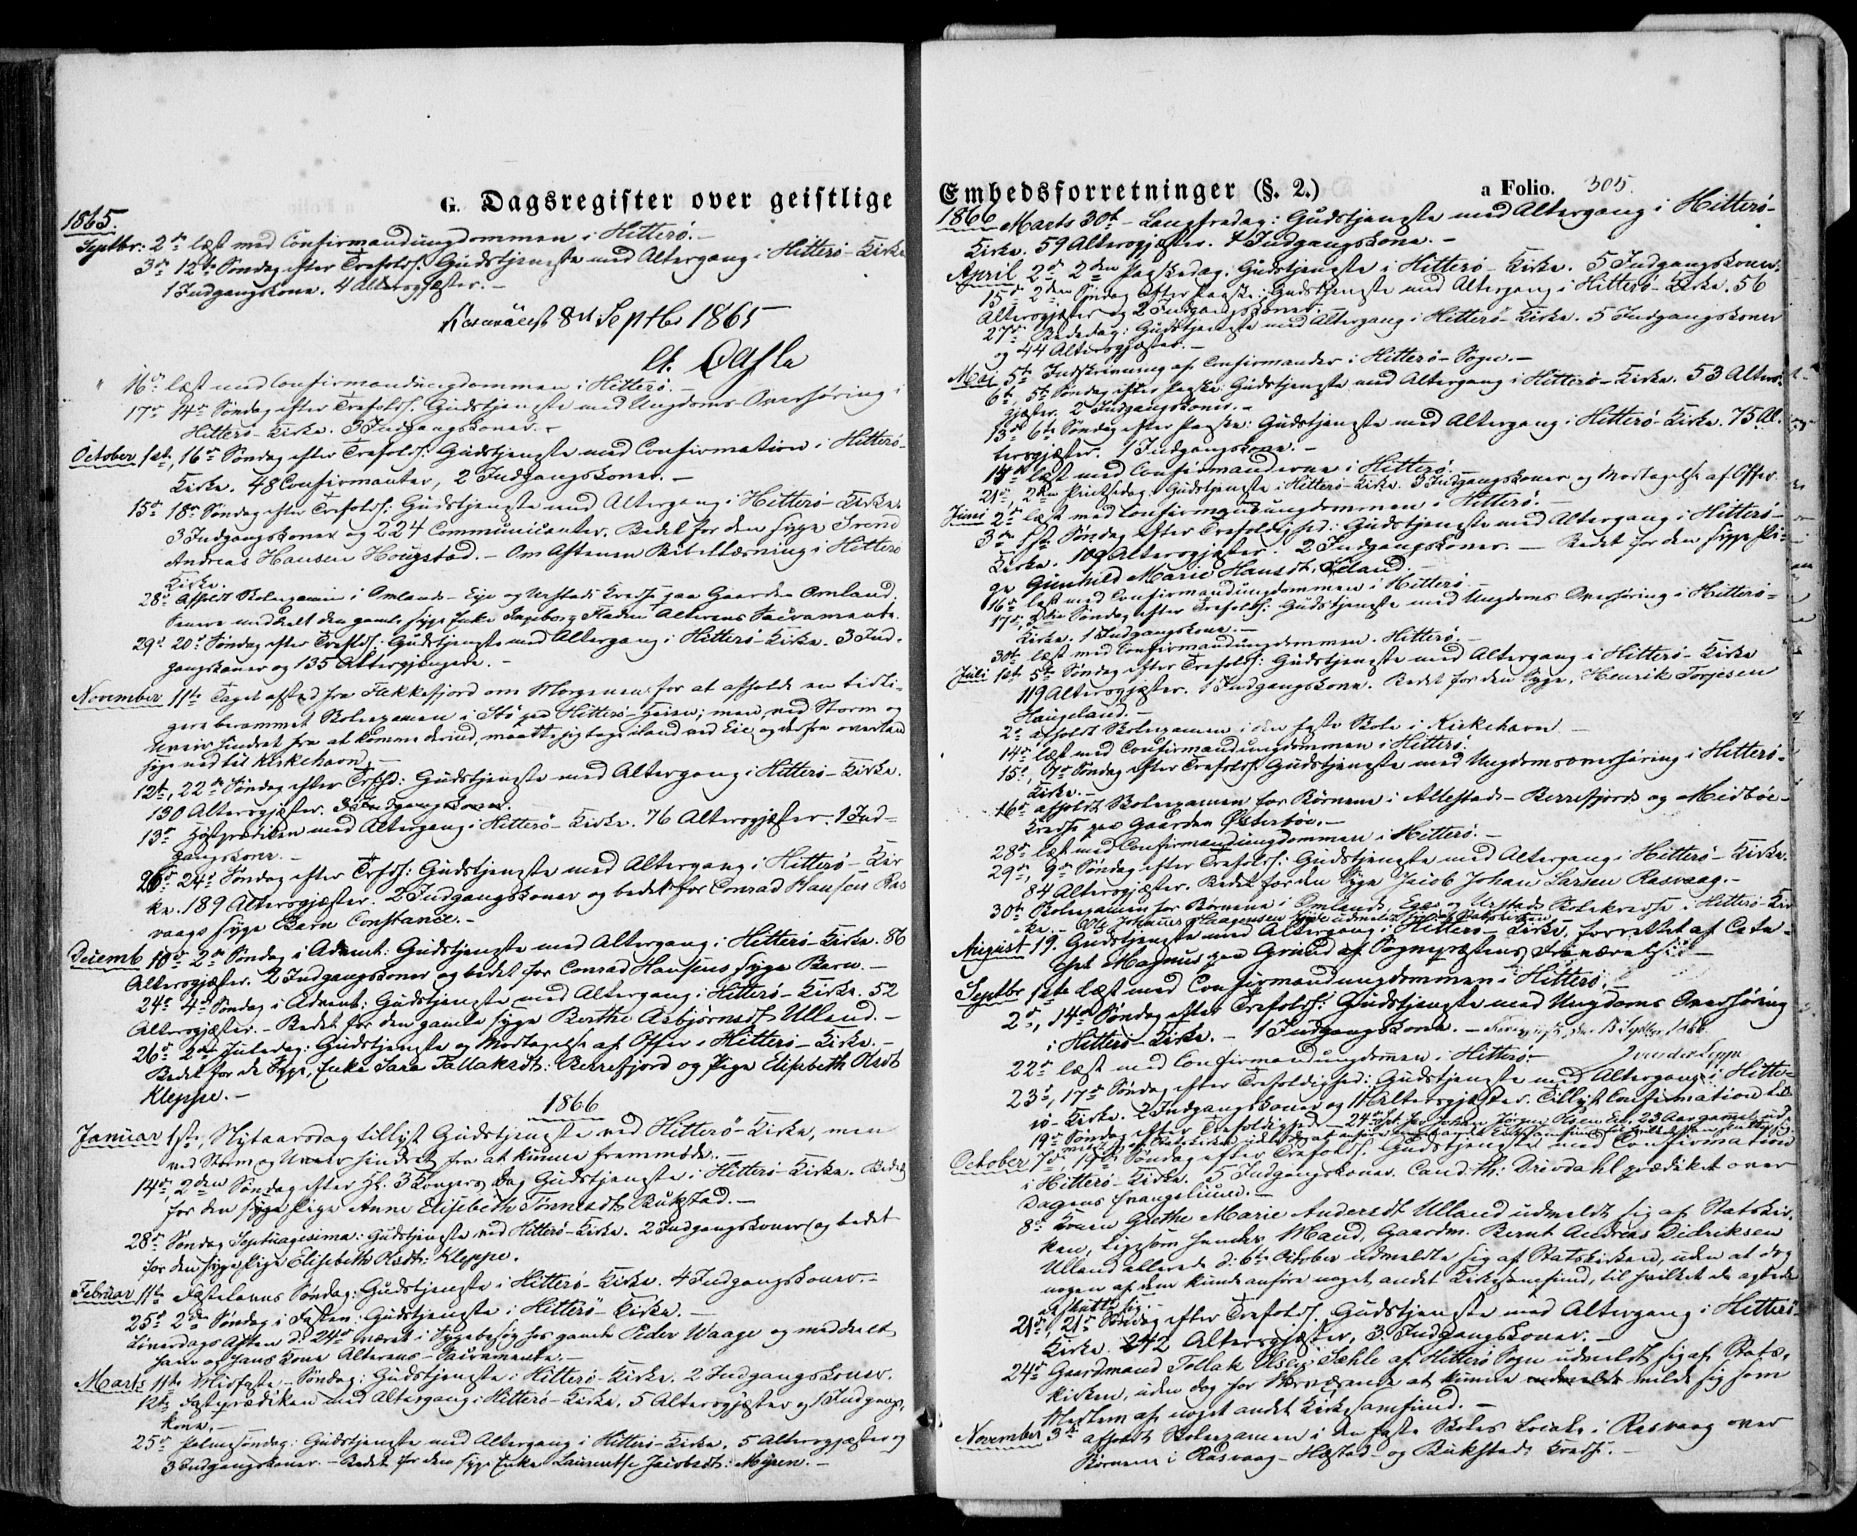 G. Dagsregister over geistlige
1865.
Septbr: 2den læst med Confirmandungdommen i Hitterø. -
3die 12te Søndag efter Trefoldh: Gudstjeneste med Altergang i Hitterø-Kirke
1 Indgangskone. 4 Altergjæster. -
8de Septbr 1865
" 16de læst med Confirmandungdommen i Hitterø. -
17de 14de Søndag efter Trefoldh: Gudstjeneste med Ungdoms-Overhøring i
Hitterø-Kirke. 3 Indgangskoner. -
October 1ste, 16de Søndag efter Trefoldh: Gudstjeneste med Confirmation i Hitterø-
Kirke. 48 Confirmanter, 2 Indgangskoner. -
15de 18de Søndag efter Trefoldh: Gudstjeneste med Altergang i Hitterø-Kirke.
3 Indgangskoner og 224 Communicanter. Bedet for den syge Svend
Andreas Hansen Hougstad. - Om Aftenen Bibellæsning i Hitterø
Kirke.
28de Afholdt Skoleexamen i Omlands- Eye og Urstads Kreds paa Gaarden Omland.
Senere meddelt den gamle syge Enke Ingeborg Staden Alterens Sacramente.
29de 20de Søndag efter Trefoldh: Gudstjeneste med Altergang i Hitterø-Kirke. 3 Ind-
gangskoner og 135 Altergjængere. -
November 11te Taget afsted fra Flekkefjord om Morgenen for at afholde en tidli-
gere berammet Skoleexamen i Stø ved Hitterø-Teisen; men ved Storm og
Uveir hindret fra at komme derud, maatte jeg tage iland ved Eie og derfra overland
hjem til Kirkehavn. -
12te, 22de Søndag efter Trfhd: Gudstjeneste med Altergang i Hitterø-Kirke.
130 Altergjæster. 3 Indgangskoner.
13de Høstprædiken med Altergang i Hitterø-Kirke. 76 Altergjæster. 1 Ind-
gangskone. -
26de 24de Søndag efter Trfdh: Gudstjeneste med Altergang i Hitterø-Kir
ke. 189 Altergjæster. 2 Indgangskoner og bedet for Conrad Hansens Ras
vaags syge Barn Constance. -
Decemb 10de 2den Søndag i Advent: Gudstjeneste med Altergang i Hitterø-Kirke. 86
Altergjæster. 2 Indgangskoner og bedet for Conrad Hansens syge Barn. -
24de 4de Søndag i Advent: Gudstjeneste med Altergang i Hitterø-Kirke. 52
Altergjæster. - Bedet for den gamle syge Berthe Asbjørnsdt Ulland. -
26de 2den Juledag: Gudstjeneste og Modtagelse af Offer i Hitterø-Kirke. -
Bedet for de syge, Enke Sara Tallaksdt: Berrefjord og Pige Elisebeth Olsdt
Kleppe. -
1866
Januar 1ste, Nytaarsdag tillyst Gudstjeneste ved Hitterø-Kirke, men
ved Storm og Uveir hindret fra at kunne fremmøde. -
14de 2den Søndag efter Hl. 3 Kongers Dag Gudstjeneste i Hitterø-Kirke. Bedet
for den syge Pige Anne Elisebeth Tønnesdt Bukstad. -
28de Søndag Septuagesima: Gudstjeneste ved Hitterø-Kirke. 2 Indgangskoner og bedet
for den syge Pige Elisebeth Olsdt: Kleppe.
Februar 11te Fastelavns Søndag: Gudstjeneste i Hitterø-Kirke. 4 Indgangskoner. -
25de 2den Søndag i Fasten: Gudstjeneste i Hitterø-Kirke. -
Løverdags Aften d: 24de været i Sygebesøg hos gamle Peder Waage og meddelt
ham og hans Kone Alterens-Sacramente. -
Marts 11te Midfaste-Søndag: Gudstjeneste i Hitterø-Kirke. 2 Indgangskoner.
12te Fasteprædiken med Altergang i Hitterø-Kirke, 5 Altergjæster og 1 Indgangs-
kone. -
25de Palmesøndag: Gudstjeneste med Altergang i Hitterø-Kirke. 5 Altergjæster og
3 Indgangskoner. - Bedet for den syge Enke Laurentse Jacobsdt: Myren. -
Embedsforretninger (§. 2.) a Folio. 305.
1866 Marts 30te - Langfredag: Gudstjeneste med Altergang i Hitterø-
Kirke. 59 Altergjæster. 4 Indgangskone. -
April 2den 2den Paaskedag. Gudstjeneste i Hitterø-Kirke. 5 Indgangskoner.
15de 2den Søndag efter Paaske: Gudstjeneste med Altergang i Hitterø-Kirke. 56
Altergjæster og 2 Indgangskoner.
27de Bededag: Gudstjeneste med Altergang i Hitterø-Kirke. 5 Indgangskoner
og 44 Altergjæster. -
Mai 5te Indskrivning af Confirmander i Hitterø-Sogn. -
6te, 5te Søndag efter Paaske Gudstjeneste med Altergang i Hitterø-Kirke. 53 Alter-
gjæster. 2 Indgangskoner. -
13de 6te Søndag efter Paaske: Gudstjeneste med Altergang i Hitterø-Kirke. 75 Al-
tergjæster. 1 Indgangskone. -
19de læst med Confirmanderne i Hitterø.
21de, 2den Pintsedag. Gudstjeneste i Hitterø-Kirke. 3 Indgangskoner og Modtagelse af Offer.
Juni 2den læst med Confirmandungdommen i Hitterø. -
3die 1ste Søndag efter Trefoldighed: Gudstjeneste med Altergang i Hitterø-
Kirke. 109 Altergjæster. 2 Indgangskoner. - Bedet for den syge Pi-
ge Gunhild Marie Hansdt. Eland. -
16de læst med Confirmandungdommen i Hitterø. -
17de, 3die Søndag efter Trefoldh: Gudstjeneste med Ungdoms Overhøring i Hitterø-
Kirke. 1 Indgangskone. -
30te læst med Confirmandungdommen. Hitterø. -
Juli 1ste 5te Søndag efter Trefoldh: Gudstjeneste med Altergang i Hitterø-Kirke
119 Altergjæster. 1 Indgangskone. Bedet for den syge, Henrik Torjesen
Haugeland. -
2den afholdt Skoleexamen i den faste Skole i Kirkehavn -
14de læst med Confirmandungdommen i Hitterø.
15de, 7de Søndag efter Trefoldh. Gudstjeneste med Ungdomsoverhøring i Hitterø-
Kirke. -
16de afholdt Skoleexamen for Børnene i Allestad- Berrefjords og Midbøe-
Kreds paa Gaarden Østerbøe. -
28de læst med Confirmandungdommen i Hitterø. -
29de, 9de Søndag efter Trefoldh: Gudstjeneste med Altergang i Hitterø-Kirke.
84 Altergjæster. Bedet for den syge Jacob Johan Larsen Rasvaag. -
30te Skoleexamen for Børnene i Omlands, Eye og Urstads Skolekredse i Hitterø-Kir
ke. - Ole Johannes Haagensen Eye udmeldt sig af Statskirken.
August 19. Gudstjeneste med Altergang i Hitterø-Kirke, forrettet af Cate-
chet Magnus paa Grund af Sognepræstens Fraværelse. -
Septbr 1ste læst med Confirmandungdommen i Hitterø. -
2den, 14de Søndag efter Trefoldh: Gudstjeneste med Ungdoms Overhøring
i Hitterø-Kirke. - 1 Indgangskone. - 15 Septbr. 1866.
22de læst med Confirmandungdommen i Hitterø. -
23de, 17de Søndag efter Trefoldighed: Gudstjeneste med Altergang i Hitte-
rø-Kirke. 2 Indgangskoner og 11 Altergjæster. Tillyst Confirmation til
19de Søndag efter Trefoldighed. - 24de Johan Jørgen Olsen Eie, 23 Aar gammel, ud-
October 7de, 19de Søndag efter Trefoldh: Gudstjeneste med Confirmation
i Hitterø-Kirke. 5 Indgangskoner. Cand. th: Drevdahl prædiket over
Dagens Evangelium. -
8de Konen Grethe Marie Andersdt Ulland udmeldt sig af Statskir-
ken, ligesom hendes Mand, Gaardm. Bernt Andreas Didriksen
Ulland allerede d: 6te October udmeldte sig af Statskirken, uden at dog
nogen af dem kunde anføre noget andet Kirkesamfund, til hvilket de agtede
at slutte sig. -
21de, 21de Søndag efter Trefoldh: Gudstjeneste med Altergang i Hitterø
Kirke. 242 Altergjæster, 3 Indgangskoner. -
24de Gaardmand Tollak Olsen Sæhle af Hitterø Sogn udmeldt sig af Stats-
kirken, uden dog for Nærværende at kunne melde sig som
Medlem af noget andet Kirkesamfund. -
November 3die afholdt Skoleexamen i den faste Skoles Locale i Rasvaag over
Børnene i Rasvaag- Hæstad- og Bukstads Kreds. -